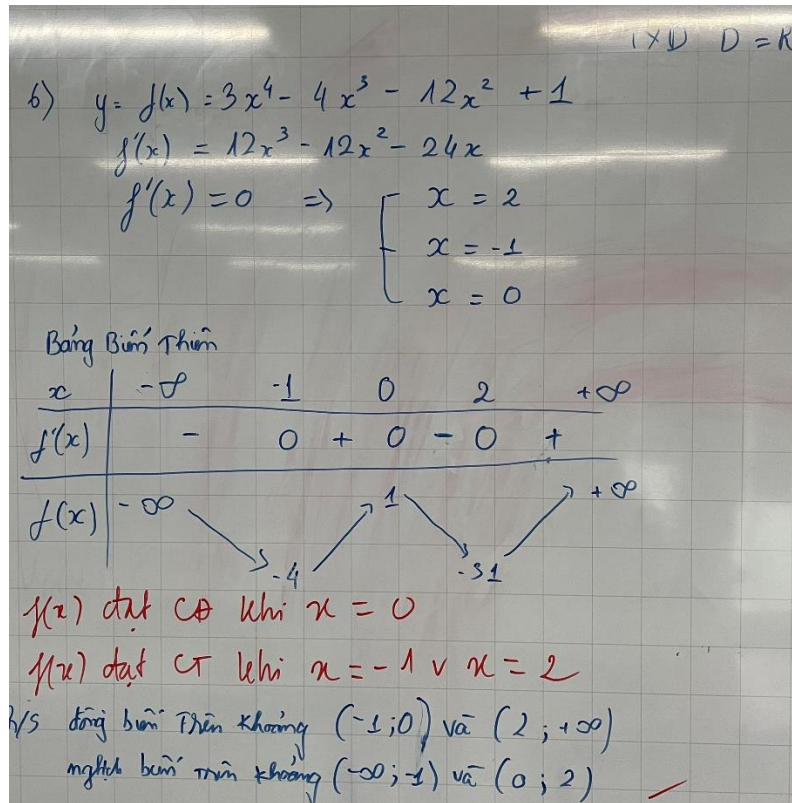 TXD D = R
b) y = f(x) = 3x⁴ - 4x³ - 12x² + 1
f'(x) = 12x³ - 12x² - 24x
f'(x) = 0 => [ x = 2
x = -1
x = 0
Bảng Biến Thiên
x | -∞ -1 0 2 +∞
f'(x) | - 0 + 0 - 0 +
f(x) | -∞ ↘ -4 ↗ 1 ↘ -31 ↗ +∞
f(x) đạt CĐ khi x = 0
f(x) đạt CT khi x = -1 v x = 2
h/s đồng biến trên khoảng (-1;0) và (2;+∞)
nghịch biến trên khoảng (-∞;-1) và (0;2)